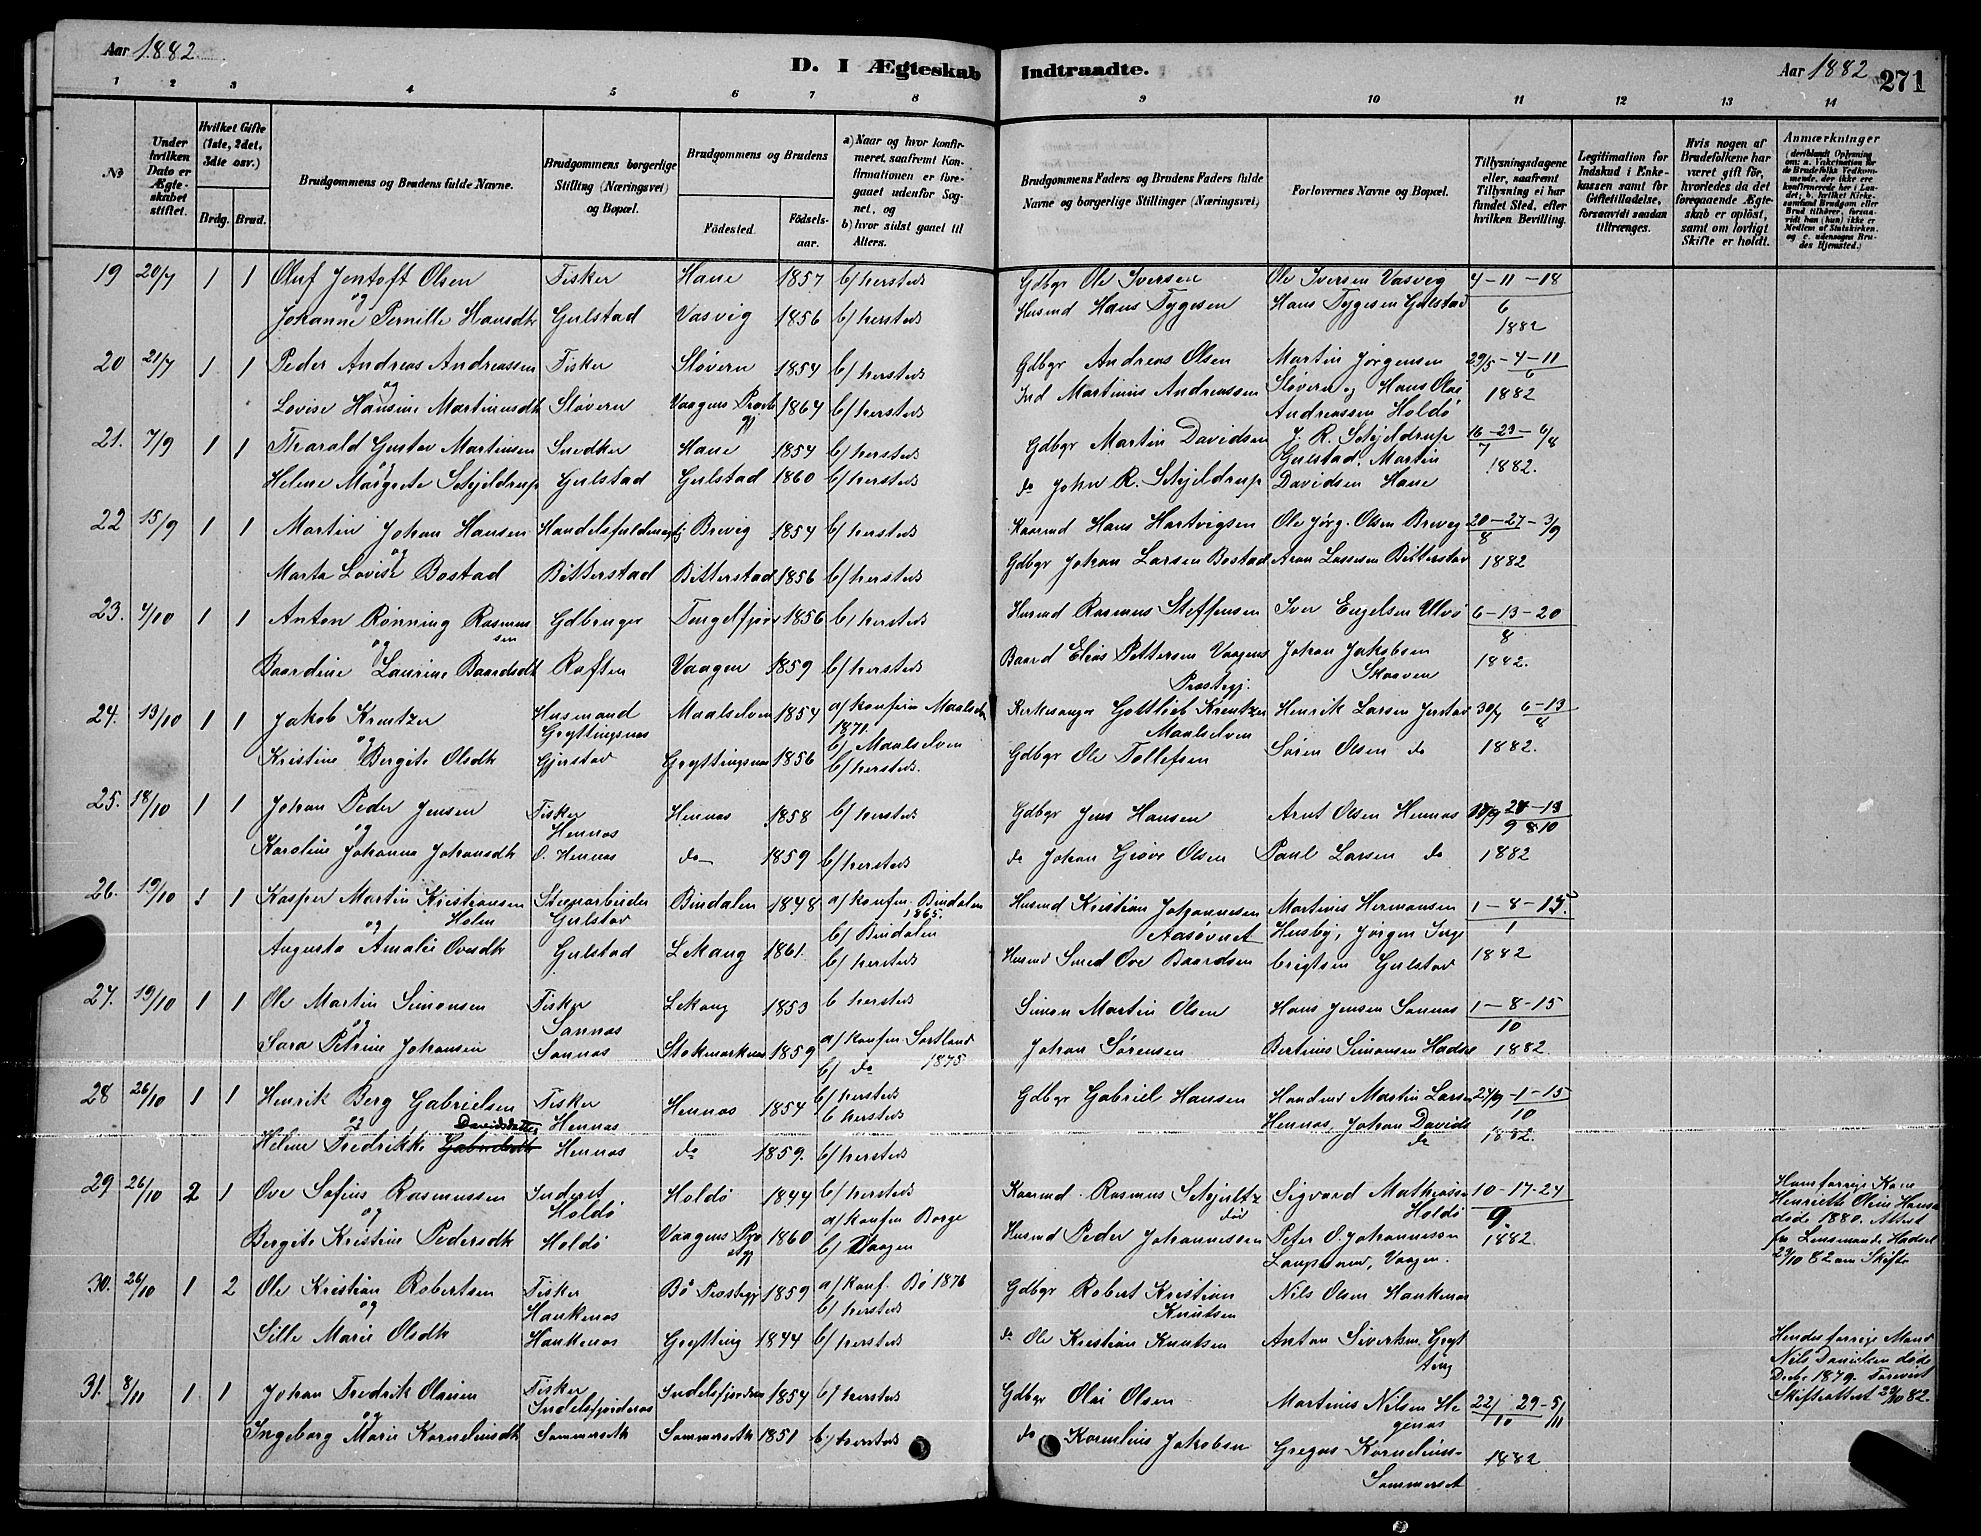 Aar 1882
D. I Ægteskab Indtraadte.
Aar 1882
271
1 2 3 4 5 6 7 8 9 10 11 12 13 14
No
Under hvilken Dato er Ægteskabet stiftet.
Hvilket Gifte (1ste, 2det, 3die osv.)
Brdg. Brud.
Brudgommens og Brudens fulde Navne.
Brudgommens borgerlige Stilling (Næringsvei) og Bopæl.
Brudgommens og Brudens
Födested. Födselsaar.
a) Naar og hvor konfirmeret, saafremt Konfirmationen er foregaaet udenfor Sognet, og
b) hvor sidst gaaet til Alters.
Brudgommens Faders og Brudens Faders fulde Navne og borgerlige Stillinger (Næringsvei)
Forlovernes Navne og Bopæl.
Tillysningsdagene eller, saafremt Tillysning ei har fundet Sted, efter hvilken Bevilling.
Legitimation for Indskud i Enkekassen samt for Giftetilladelse, forsaavidt saadan tiltrænges.
Hvis nogen af Brudefolkene har været gift för, hvorledes da det foregaaende Ægteskab er oplöst, samt om lovligt Skifte er holdt.
Anmærkninger
(deriblandt Oplysning om: a. Vakcination for de Brudefolks Vedkommende, der ikke ere konfirmerede her i Landet; b. hvilket Kirkesamfund Brudgom eller Brud tilhörer, forsaavidt han (hun) ikke er Medlem af Statskirken, og c. udensogns Brudes Hjemsted.)
19 20/7 1 1 Oluf Jentoft Olsen Fisker Hane 1857 b/ hersteds Gdbgr Ole Iversen Ole Iversen Vasveg 4-11-18
og
Johanne Pernille Hansdtr Gulstad Vasvig 1856 b/ hersteds Husmd Hans Tygesen Hans Tygesen Gulstad 6
1882
20 21/7 1 1 Peder Andreas Andreassen Fisker Sløveren 1854 b/ hersteds Gdbgr Andreas Olsen Martin Jørgensen 29/5-4-11
og 6
Sløveren og Hans Olai
Lovise Hansine Martinusdtr Sløveren Vaagens Prstgj 1864 b/ hersteds Ind Martinius Andreassen Andreassen Holdø 1882
21. 7/9 1 1 Tharald Gustav Martinsen Snedker Hane 1854 b/ hersteds Gdbgr Martin Davidsen J. R. Schjeldrup 16-23-6/8
og 7
Gulstad, Martin
Helene Margrete Schjeldrup Gulstad Gulstad 1860 b/ hersteds do John R. Schjeldrup Davidsen Hane 1882.
22 15/9 1 1 Martin Johan Hansen Handelsfuldmægtig Brevig 1854 b/ hersteds Kaarmd Hans Hartvigsen Ole Jørg. Olsen Breveg 20-27-3/9
og 8
Marta Lovise Bostad Bitterstad Bitterstad 1856 b/ hersteds Gdbgr Johan Larsen Bostad Aron Lassesen Bitterstad 1882
23. 4/10 1 1 Anton Rønning Rasmussen Gdbruger Tengelfjor 1856 b/ hersteds Husmd Rasmus Steffensen Iver Engelsen Ulvø 6-13-20
og 8
Baardine Laurine Baardsdtr Raften Vaagen 1859 b/ hersteds Baard Elias Pettersen Vaagens Prestegj. Johan Jakobsen Skaaven 1882.
24. 13/10 1 1 Jakob Kreutzer Husmand Grytlingsnæs Maalselven 1854 a/ konfirm Maalselv 1871. Kirkesanger Gottlieb Kreutzer Maalselven Henrik Larsen Jerstad 30/7 6-13
og b/ Maalselven 8
Kristine Bergite Olsdtr Gjerstav Grytlingsnæs 1856 b/ hersteds. Gdbgr Ole Tollefsen Søren Olsen do 1882.
25. 18/10 1 1 Johan Peder Jensen Fisker Hennæs Hennæs 1858 b/ hersteds Gdbgr Jens Hansen Arnt Olsen Hennæs
og
Karoline Johanna Johansdtr Hennæs do 1859 b/ hersteds do Johan Grove Olsen Paul Larsen do 1882
26. 19/10 1 1 Kasper Martin Kristiansen Holm Gulstav Bindalen 1848 a/ konfir. Bindalen 1865. Husmd Kristian Johannesen Aasøvnet Martinus Hermansen 1-8-15.
og b/ Bindalen Husby, Jørgen Inge
Augusta Amalie Ovesdtr Gulstad Lekang 1861. b/ hersteds Husmd Smed Ove Baardsen brigtsen Gulstav 1882
27. 19/10 1 1 Ole Martin Simonsen Fisker Sannæs Lekang 1853 b hersteds Simon Martin Olsen Hans Jensen Sannæs 1-8-15
og 10
Sara Petrine Johansen Sannæs Stokmarknæs 1859 a/ konfir Sortland 1875 Johan Sørensen Bertinus Simonsen Hadsel 1882.
b/ do
28 26/10 1 1 Henrik Berg Gabrielsen Fisker Hennæs Hennæs 1854 b/ hersteds Gdbgr Gabriel Hansen Martin Larsen 24/9-1-15
og b hersteds 10
Helene Fredrikke Gabrielsdtr Davidsdatter Hennæs do 1859. b/ hersteds Hennæs, Johan Davids do 1882.
29 26/10 2 1 Ove Sofius Rasmussen Inderst Holdø Holdø 1844 b/ hersteds Kaarmd. Rasmus Schjultz død Sigvard Mathiassen Holdø 10-17-24
og a/ konfir Borge 9
Bergite Kristine Pedersdtr Holdø Vaagens Prstgj 1860 b/ Vaagen Husmd Peder Johannessen Peter O. Johannessen 1882.
Laupstad, Vaagen.
Hans forrige Kone
Henriette Oline Hansd
døde 1880. Attest
fra Lensmanden Hadsel
23/10 82 om Skifte
30. 26/10 1 2 Ole Kristian Robertsen Fisker Hankenæs Bø Prestegj 1859 a/ konf. Bø 1876 Gdbgr Robert Kristian Knutsen Nils Olsen Hankenæs
og b/ hersteds
Sille Marie Olsdtr Hankenæs Grytting 1844 b/ hersteds do Ole Kristian Knutsen Anton Siverksen Grytting
Hendes forrige Mand
Nils Danielsen døde
Decbr 1879. Forevist
Skifteattest 23/10 82.
31. 8/11 1 1 Johan Fredrik Olaisen Fisker Indelsfjordnæs Indelsfjorden 1854 b/ hersteds Gdbgr Olai Olsen Martinus Nilsen He 22/ 29-5/11
og genæs 10
Ingeborg Marie Korneliusdtr Sommersæth Sommersæth 1851 b/ hersteds do Kornelius Jakobsen Gregas Kornelius- Sommerset 1882